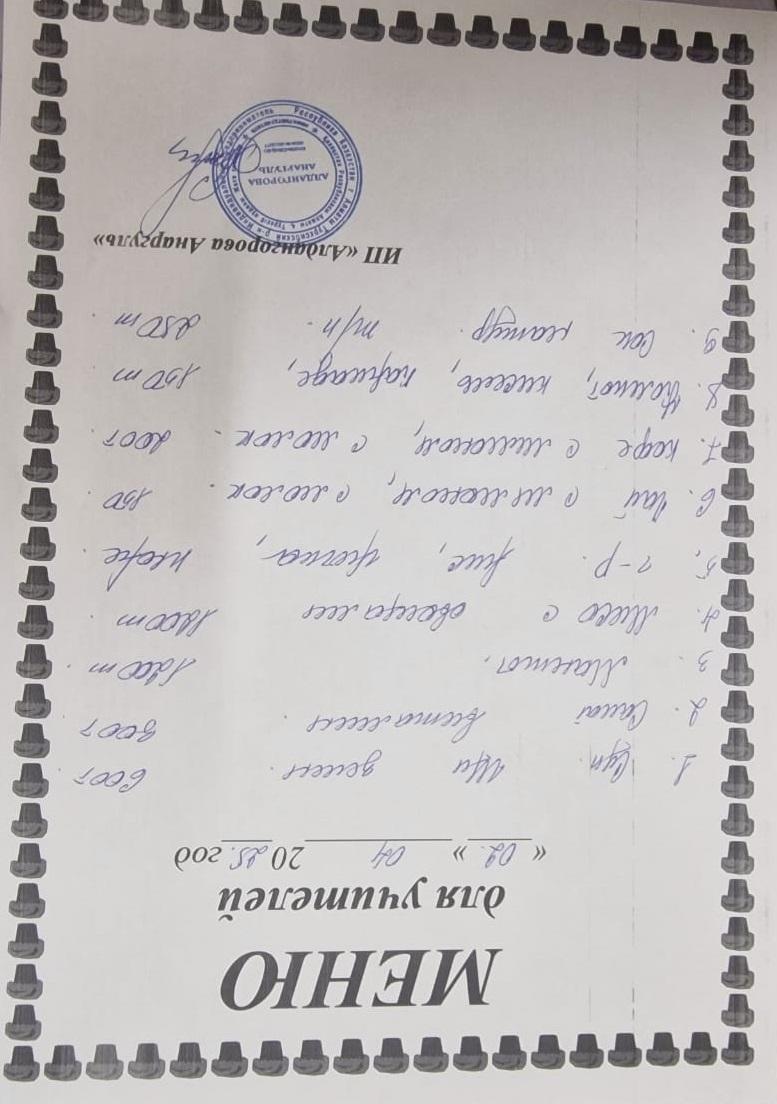 МЕНЮ
для учителей
« 02. » 04 20 25. год
1. Суп. Щи 600т
2. Салат Витамин. 300т
3. 1200т.
4. Мясо с овощами 1200т.
5. г-р. рис, гречка, пюре.
6. Чай с лимоном, с молок. 150
7. кофе с молок. 200т
8. Компот, кисель, каркаде, 150т
9. Сок натур. т/п. 250т.
ИП «Алдангорова Анаргуль»
АЛДАНГОРОВА
АНАРГУЛЬ